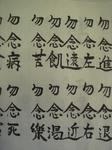 勿念進勿念退
勿念左勿念右
勿念遠勿念近
勿念飢勿念渴
勿念苦勿念樂
勿念病勿念死